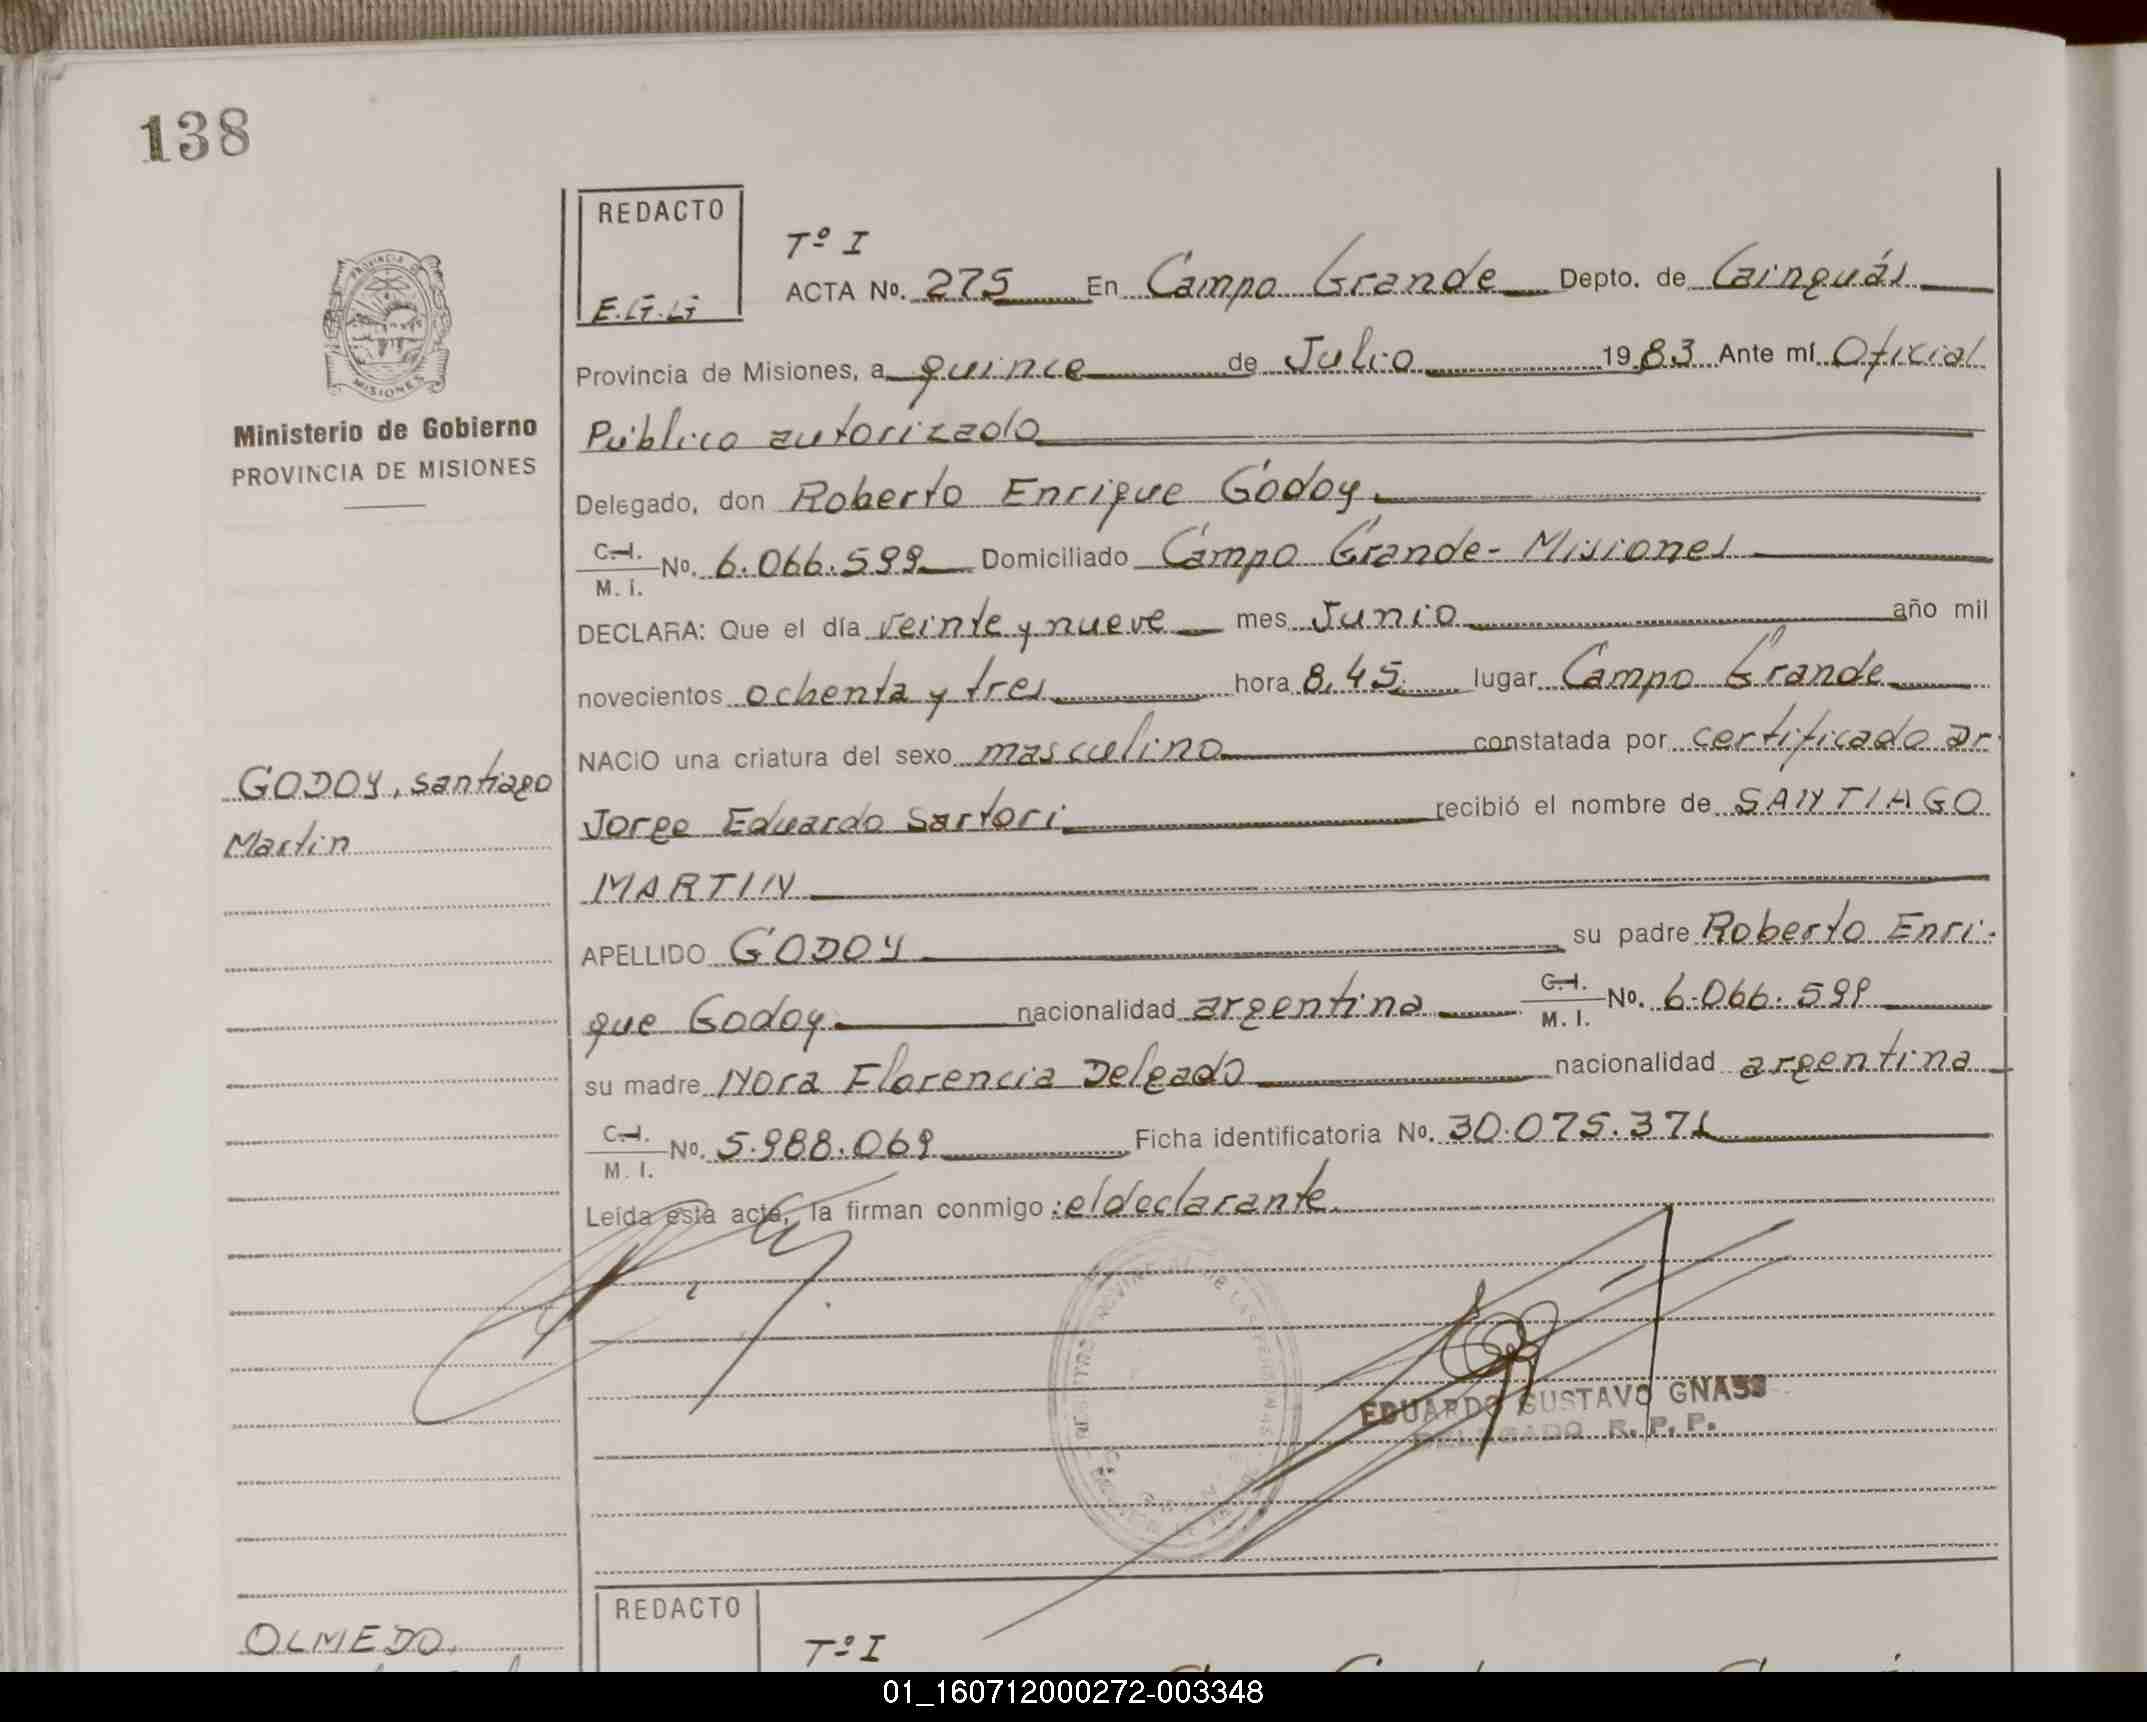 138
REDACTO
E.G.G
Tº I
ACTA Nº. 275 En Campo Grande Depto. de Cainguás
PROVINCIA DE
MISIONES
Provincia de Misiones, a quince de Julio 1983 Ante mí Oficial
Ministerio de Gobierno
PROVINCIA DE MISIONES
Público autorizado
Delegado, don Roberto Enrique Godoy
C.I. M. I. Nº. 6.066.599 Domiciliado Campo Grande - Misiones
DECLARA: Que el día veinte y nueve mes Junio año mil
novecientos ochenta y tres hora 8,45 lugar Campo Grande
NACIO una criatura del sexo masculino constatada por certificado dr.
GODOY, Santiago
Martin
Jorge Eduardo Sartori recibió el nombre de SANTIAGO
MARTIN
APELLIDO GODOY su padre Roberto Enri-
que Godoy nacionalidad argentina C.I. M. I. Nº. 6.066.599
su madre Nora Florencia Delgado nacionalidad argentina
C.I. M. I. Nº. 5.988.069 Ficha identificatoria Nº. 30.075.371
Leída esta acta, la firman conmigo: el declarante.
EDUARDO GUSTAVO GNASS
DELEGADO R. P. P.
REDACTO
OLMEDO,
Tº I
01_160712000272-003348